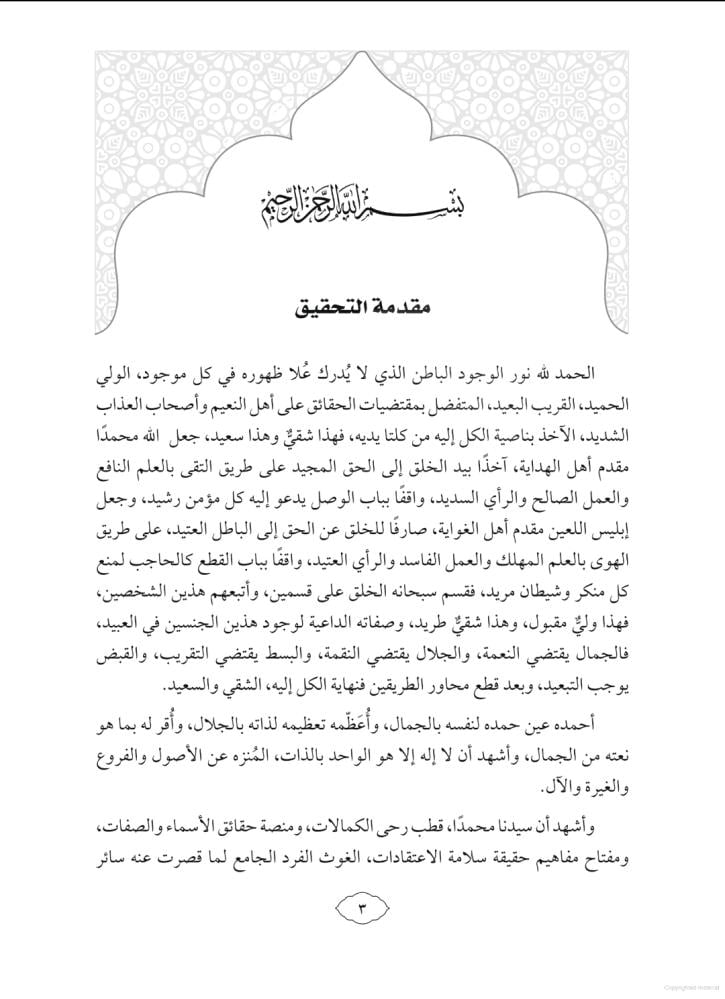 بسم الله الرحمن الرحيم
مقدمة التحقيق
الحمد لله نور الوجود الباطن الذي لا يُدرك عُلا ظهوره في كل موجود، الولي
الحميد، القريب البعيد، المتفضل بمقتضيات الحقائق على أهل النعيم وأصحاب العذاب
الشديد، الآخذ بناصية الكل إليه من كلتا يديه، فهذا شقيٌّ وهذا سعيد، جعل الله محمدًا
مقدم أهل الهداية، آخذًا بيد الخلق إلى الحق المجيد على طريق التقى بالعلم النافع
والعمل الصالح والرأي السديد، واقفًا بباب الوصل يدعو إليه كل مؤمن رشيد، وجعل
إبليس اللعين مقدم أهل الغواية، صارفًا للخلق عن الحق إلى الباطل العتيد، على طريق
الهوى بالعلم المهلك والعمل الفاسد والرأي العتيد، واقفًا بباب القطع كالحاجب لمنع
كل منكر وشيطان مريد، فقسم سبحانه الخلق على قسمين، وأتبعهم هذين الشخصين،
فهذا وليٌّ مقبول، وهذا شقيٌّ طريد، وصفاته الداعية لوجود هذين الجنسين في العبيد،
فالجمال يقتضي النعمة، والجلال يقتضي النقمة، والبسط يقتضي التقريب، والقبض
يوجب التبعيد، وبعد قطع محاور الطريقين فنهاية الكل إليه، الشقي والسعيد.
أحمده عين حمده لنفسه بالجمال، وأُعَظّمه تعظيمه لذاته بالجلال، وأُقر له بما هو
نعته من الجمال، وأشهد أن لا إله إلا هو الواحد بالذات، المُنزه عن الأصول والفروع
والغيرة والآل.
وأشهد أن سيدنا محمدًا، قطب رحى الكمالات، ومنصة حقائق الأسماء والصفات،
ومفتاح مفاهيم حقيقة سلامة الاعتقادات، الغوث الفرد الجامع لما قصرت عنه سائر
٣
Copyrighted material